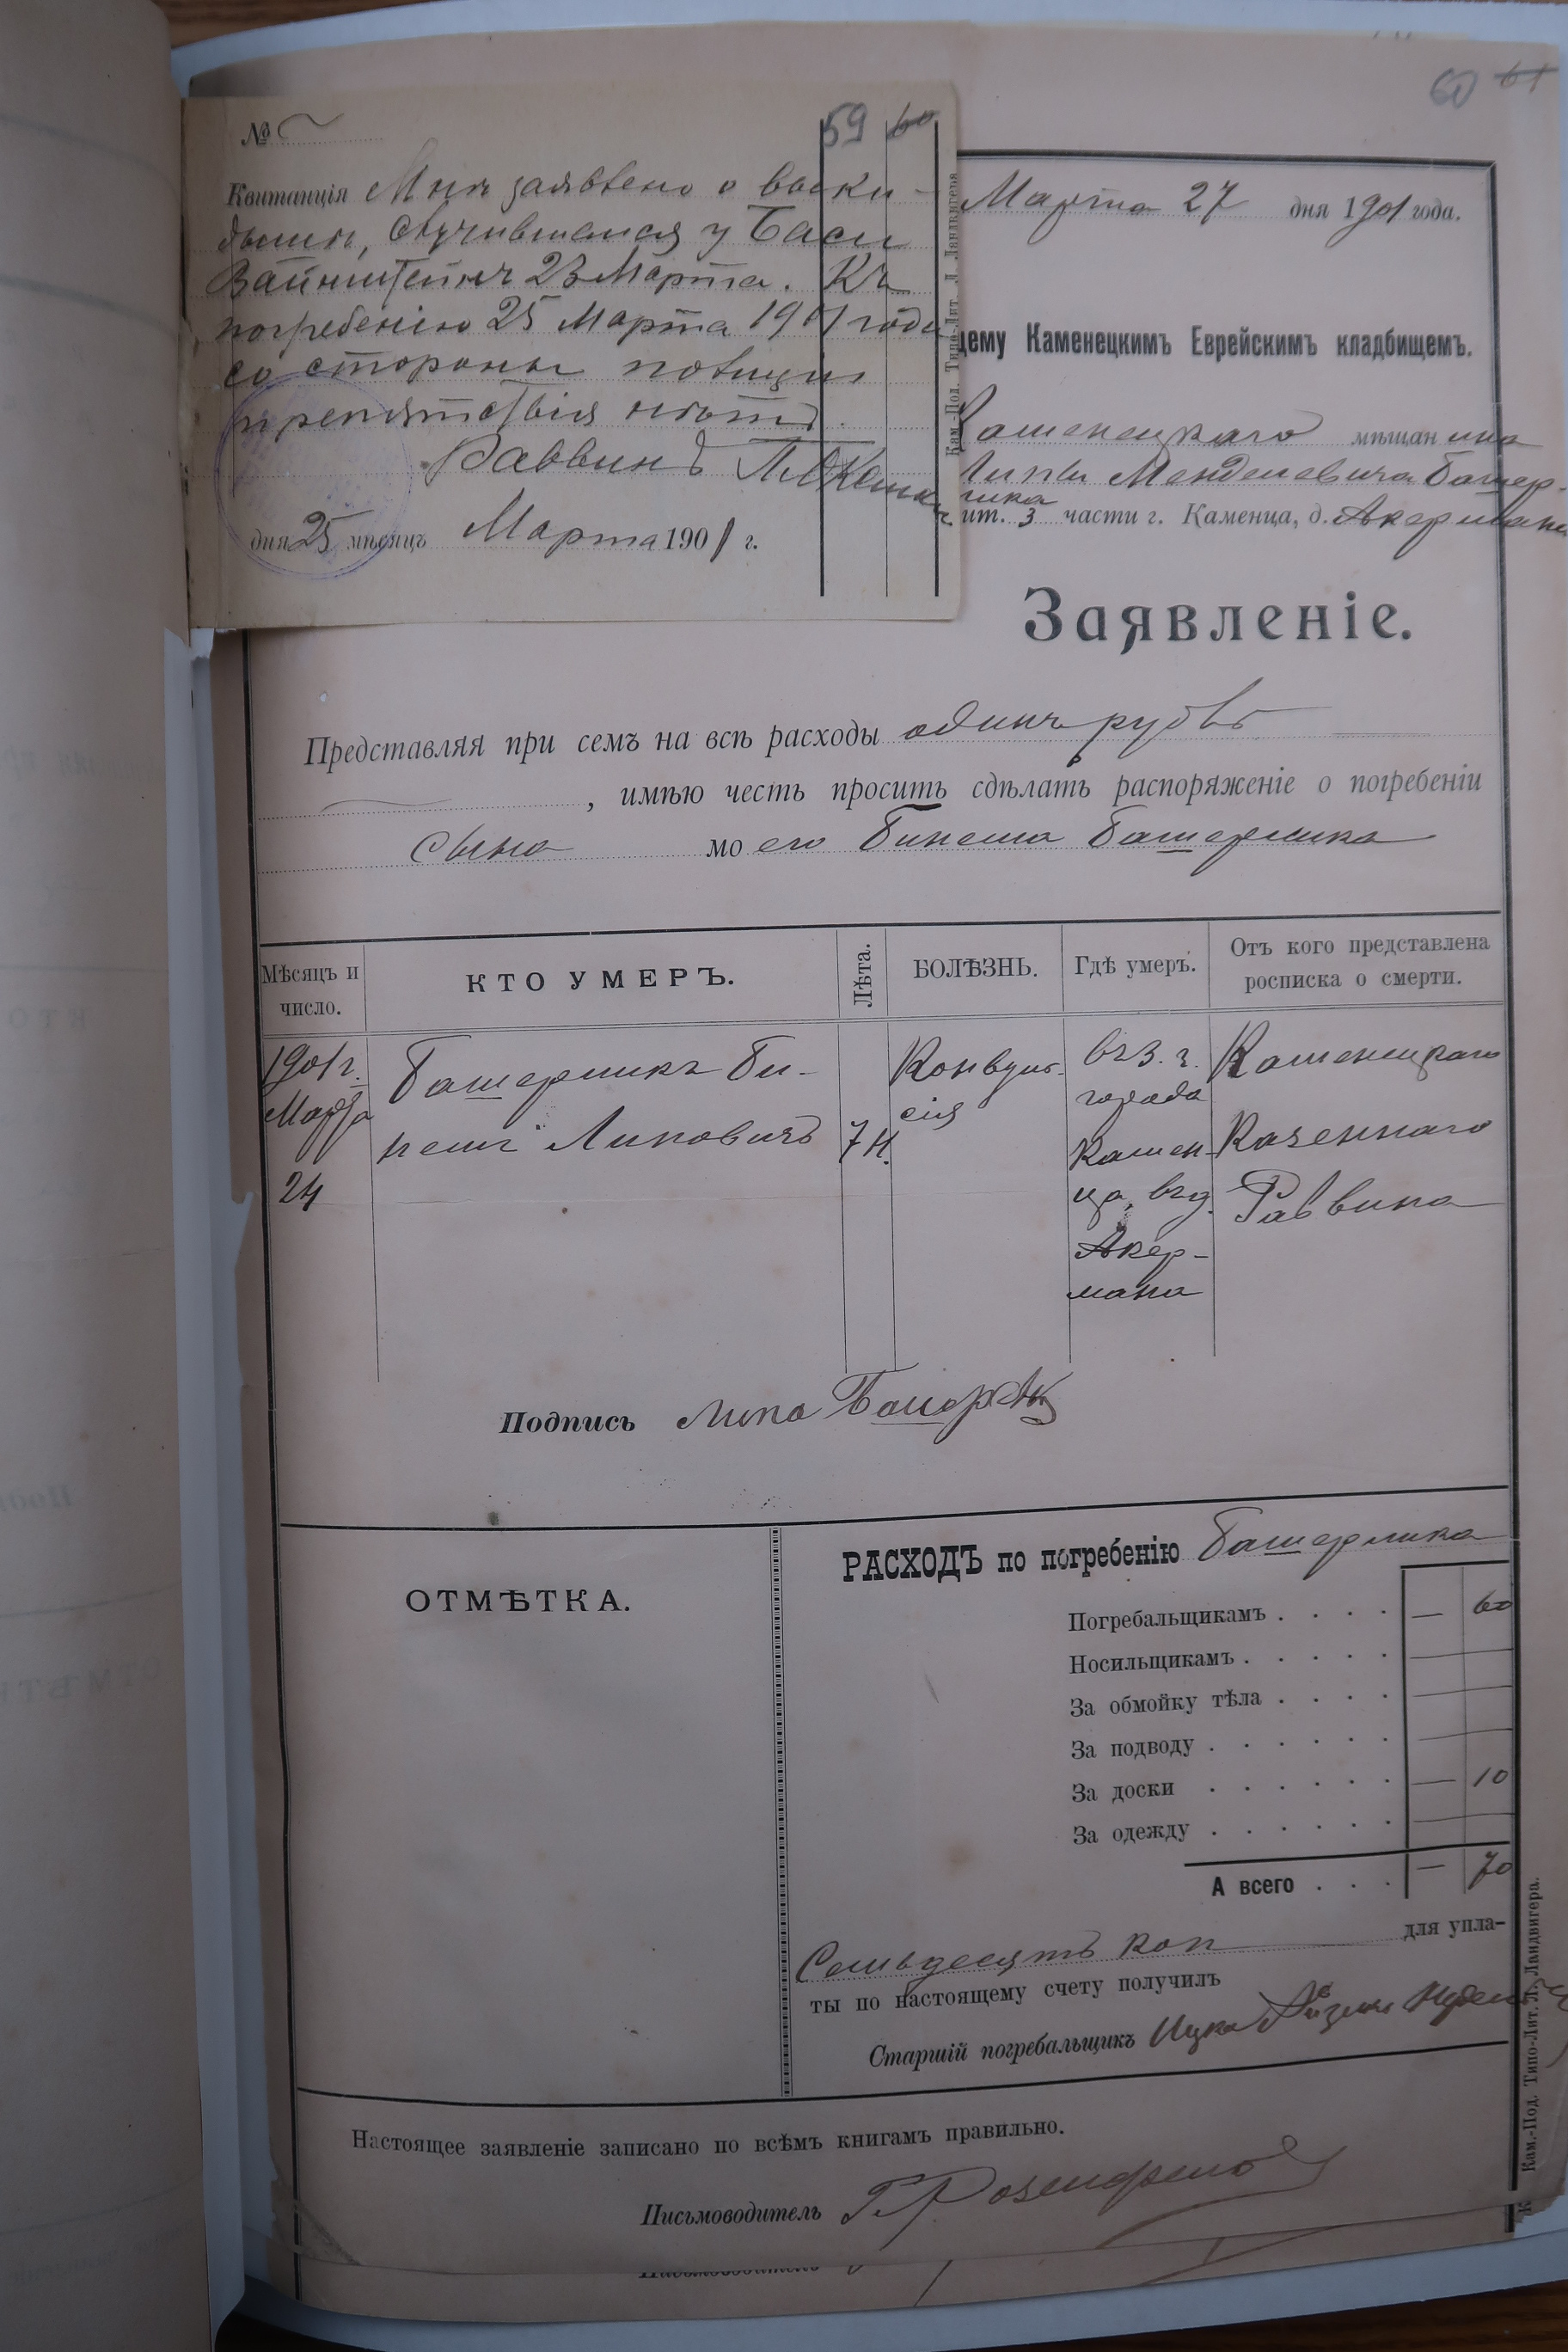 №
59
60 61
Квитанція Мнѣ заявлено о выки-
дышѣ, случившемся у Баси
Вайнштейнъ 23 Марта. Къ
погребенію 25 Марта 1901 года
со стороны полиціи
препятствія нѣтъ.
Раввинъ
дня 25 мѣсяцъ Марта 1901 г.
Кам.-Под. Типо-Лит. Л. Ландвигера
Марта 27 дня 1901 года.
щему Каменецкимъ Еврейскимъ кладбищемъ.
Каменецкаго мѣщанина
Липы Менделевича Башер-
ника
ит. 3 части г. Каменца, д. Акермана
Заявленіе.
Представляя при семъ на всѣ расходы одинъ рубль
, имѣю честь просить сдѣлать распоряженіе о погребеніи
сына моего Бинема Башерника
Мѣсяцъ и число.
КТО УМЕРЪ.
Лѣта.
БОЛѢЗНЬ.
Гдѣ умеръ.
Отъ кого представлена
росписка о смерти.
1901 г.
Марта
24
Башерникъ Би-
немъ Липовичъ
7 н.
Конвуль-
сія
въ 3. ч.
города
Камен-
ца, въ д.
Акер-
мана
Каменецкаго
Казеннаго
Раввина
Подпись Липа
ОТМѢТКА.
РАСХОДЪ по погребенію Башерника
Погребальщикамъ . . . . — 60
Носильщикамъ . . . . . —
За обмойку тѣла . . . . —
За подводу . . . . . . —
За доски . . . . . . — 10
За одежду . . . . . . —
А всего . . . — 70
Семьдесятъ коп для упла-
ты по настоящему счету получилъ
Старшій погребальщикъ Ицко
Настоящее заявленіе записано по всѣмъ книгамъ правильно.
Письмоводитель
Кам.-Под. Типо-Лит. Л. Ландвигера.
Письмоводитель